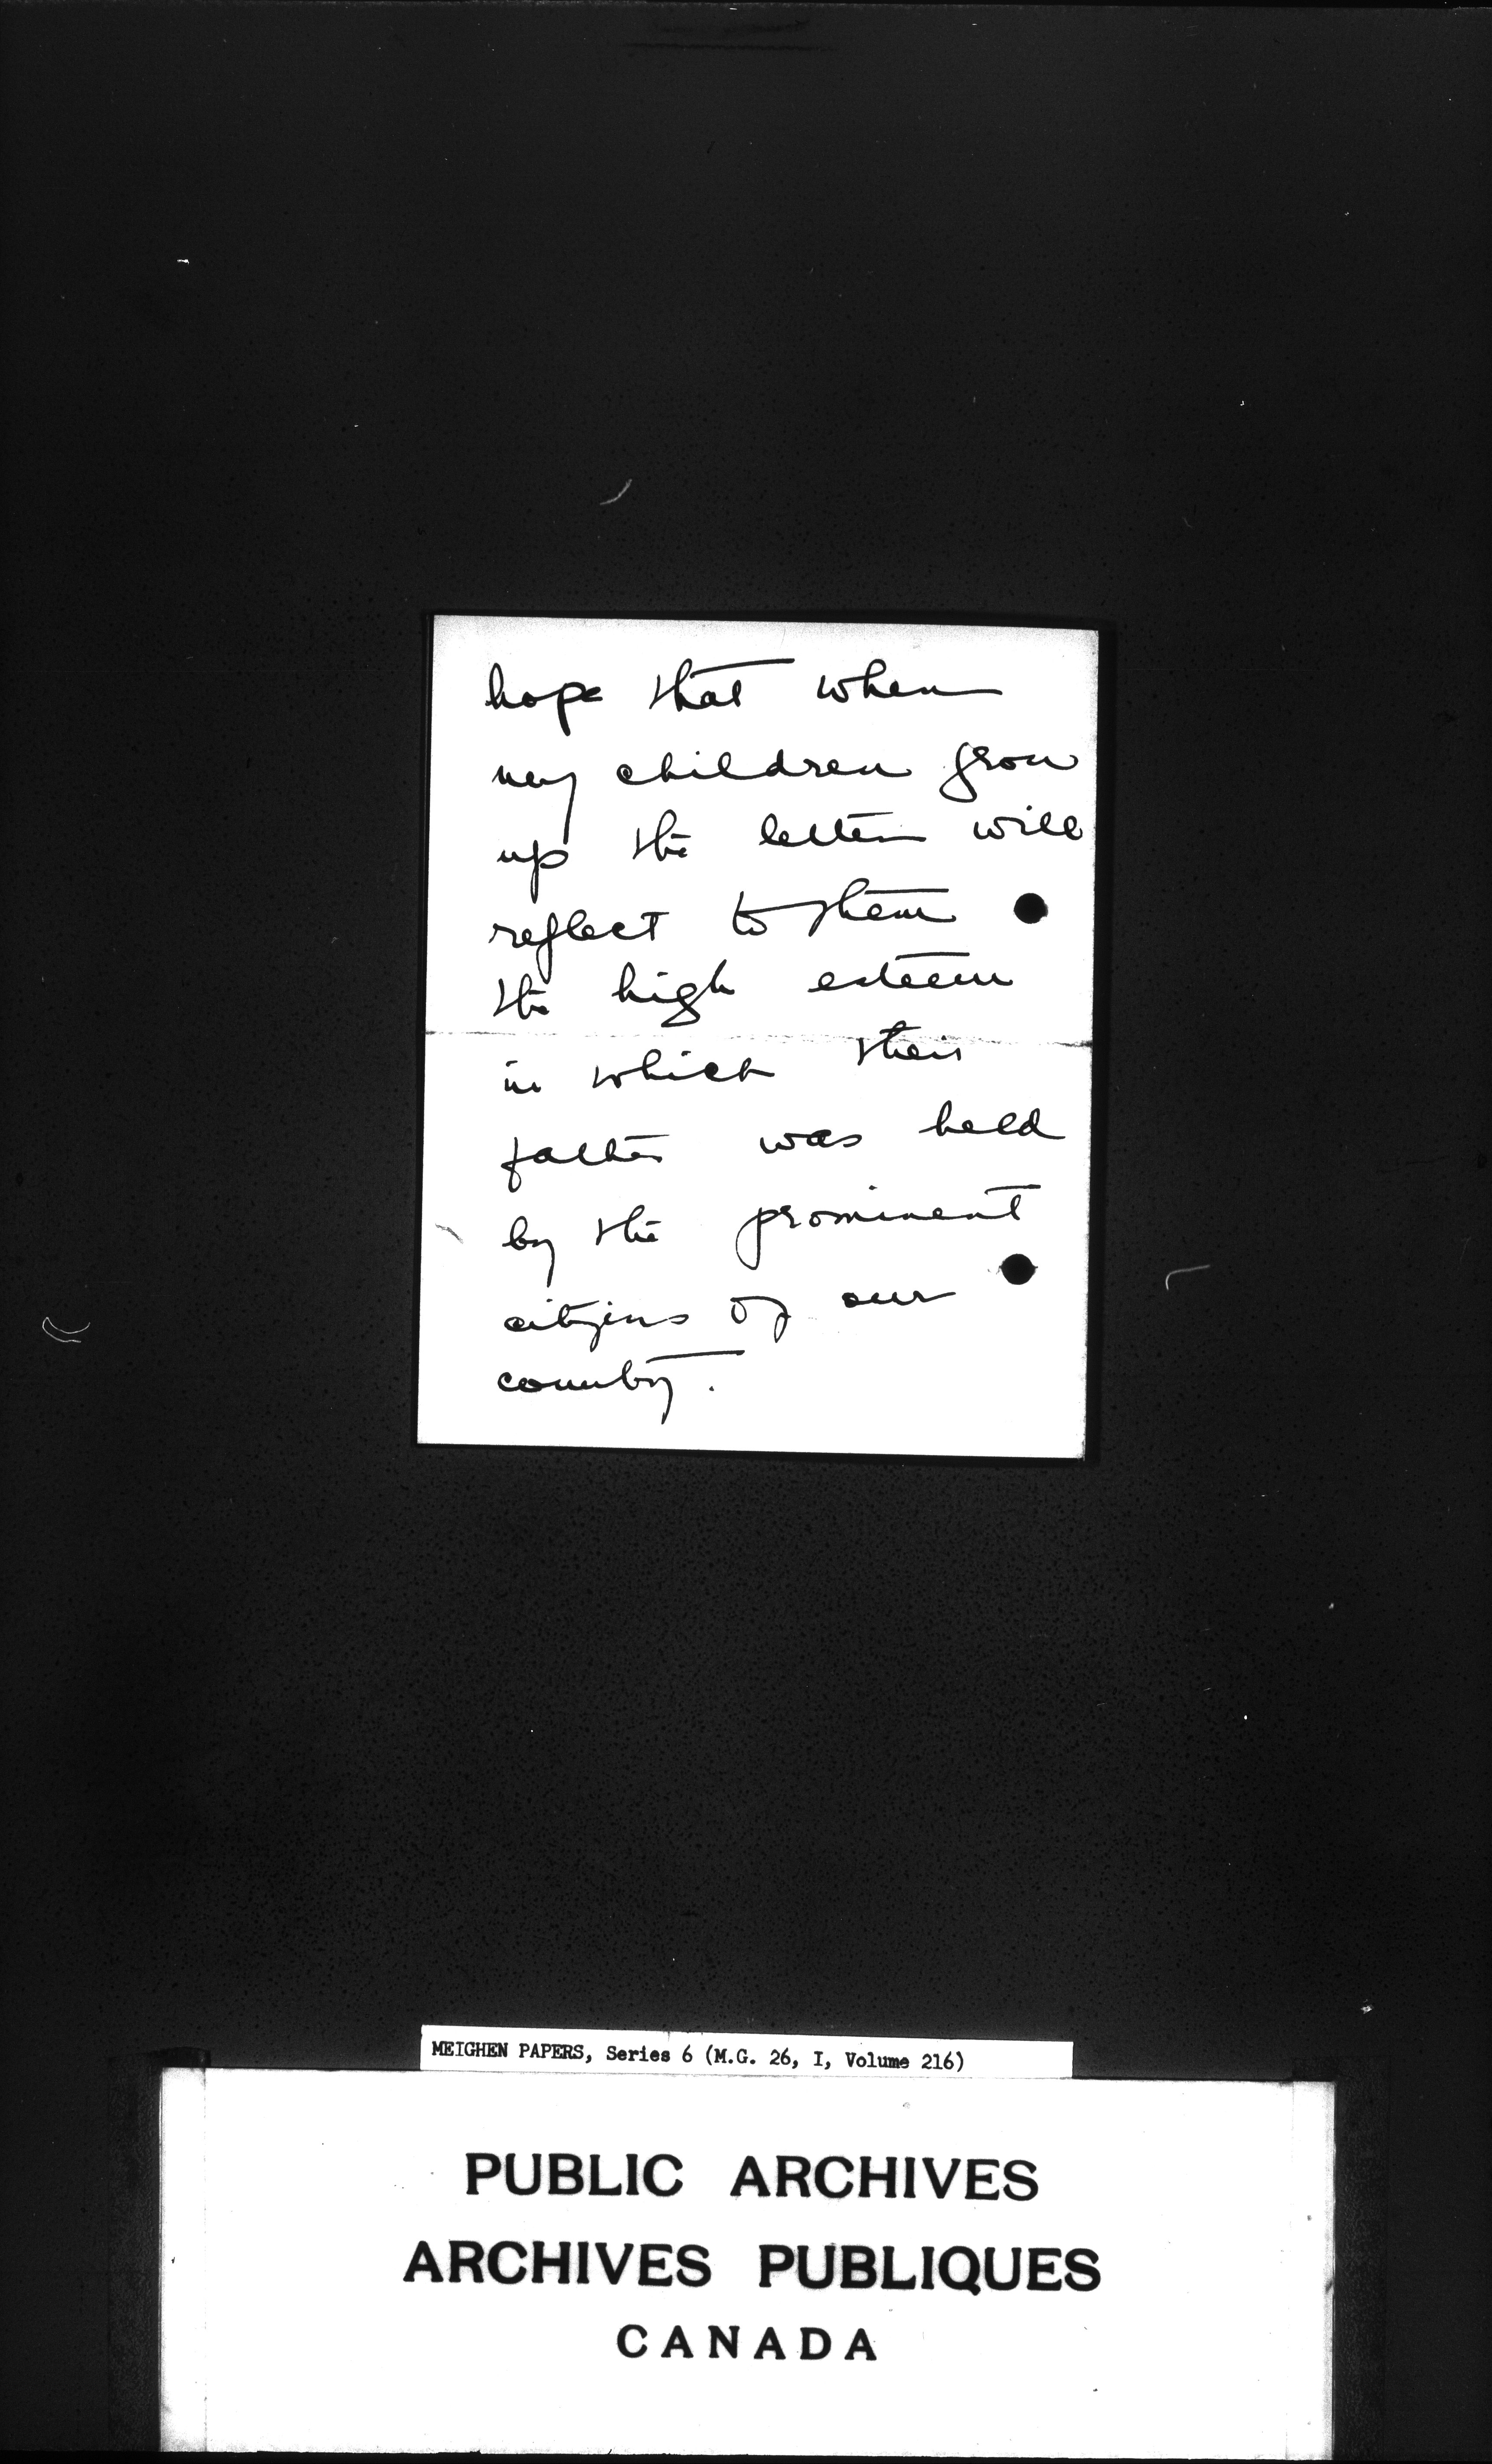 hope that when
my children grow
up the letter will
reflect to them
the high esteem
in which their
father was held
by the prominent
citizens of our
country.
MEIGHEN PAPERS, Series 6 (M.G. 26, I, Volume 216)
PUBLIC ARCHIVES
ARCHIVES PUBLIQUES
CANADA